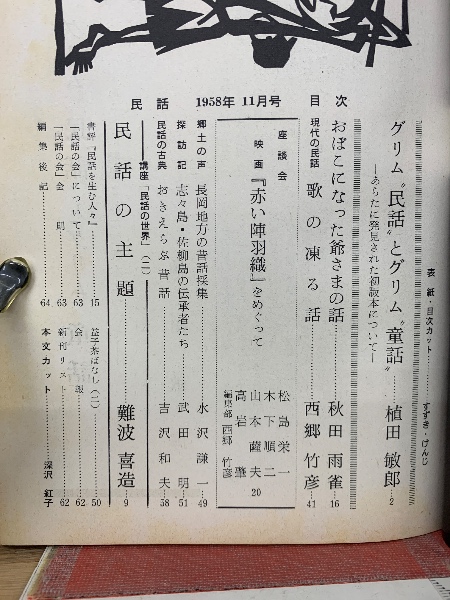 民話 1958年 11月号 目次
表紙・目次カット……すずき・けんじ
グリム〝民話〟とグリム〝童話〟……植田敏郎…2
―あらたに発見された初版本について―
おばこになった爺さまの話……秋田雨雀…16
現代の民話 歌の凍る話……西郷竹彦…41
座談会
映画『赤い陣羽織』をめぐって
松島栄一
木下順二
山本薩夫
高岩肇
編集部 西郷竹彦
20
郷土の声 長岡地方の昔話採集……水沢謙一…49
探訪記 志々島・佐柳島の伝承者たち……武田明…51
民話の古典 おきえらぶ昔話……吉沢和夫…58
講座「民話の世界」(二)
民話の主題……難波喜造…9
書評『民話を生む人々』……15
「民話の会」について……63
「民話の会」会則……63
編集後記……64
益子茶ばなし(二)……50
会報……62
新刊リスト……62
本文カット……深沢紅子